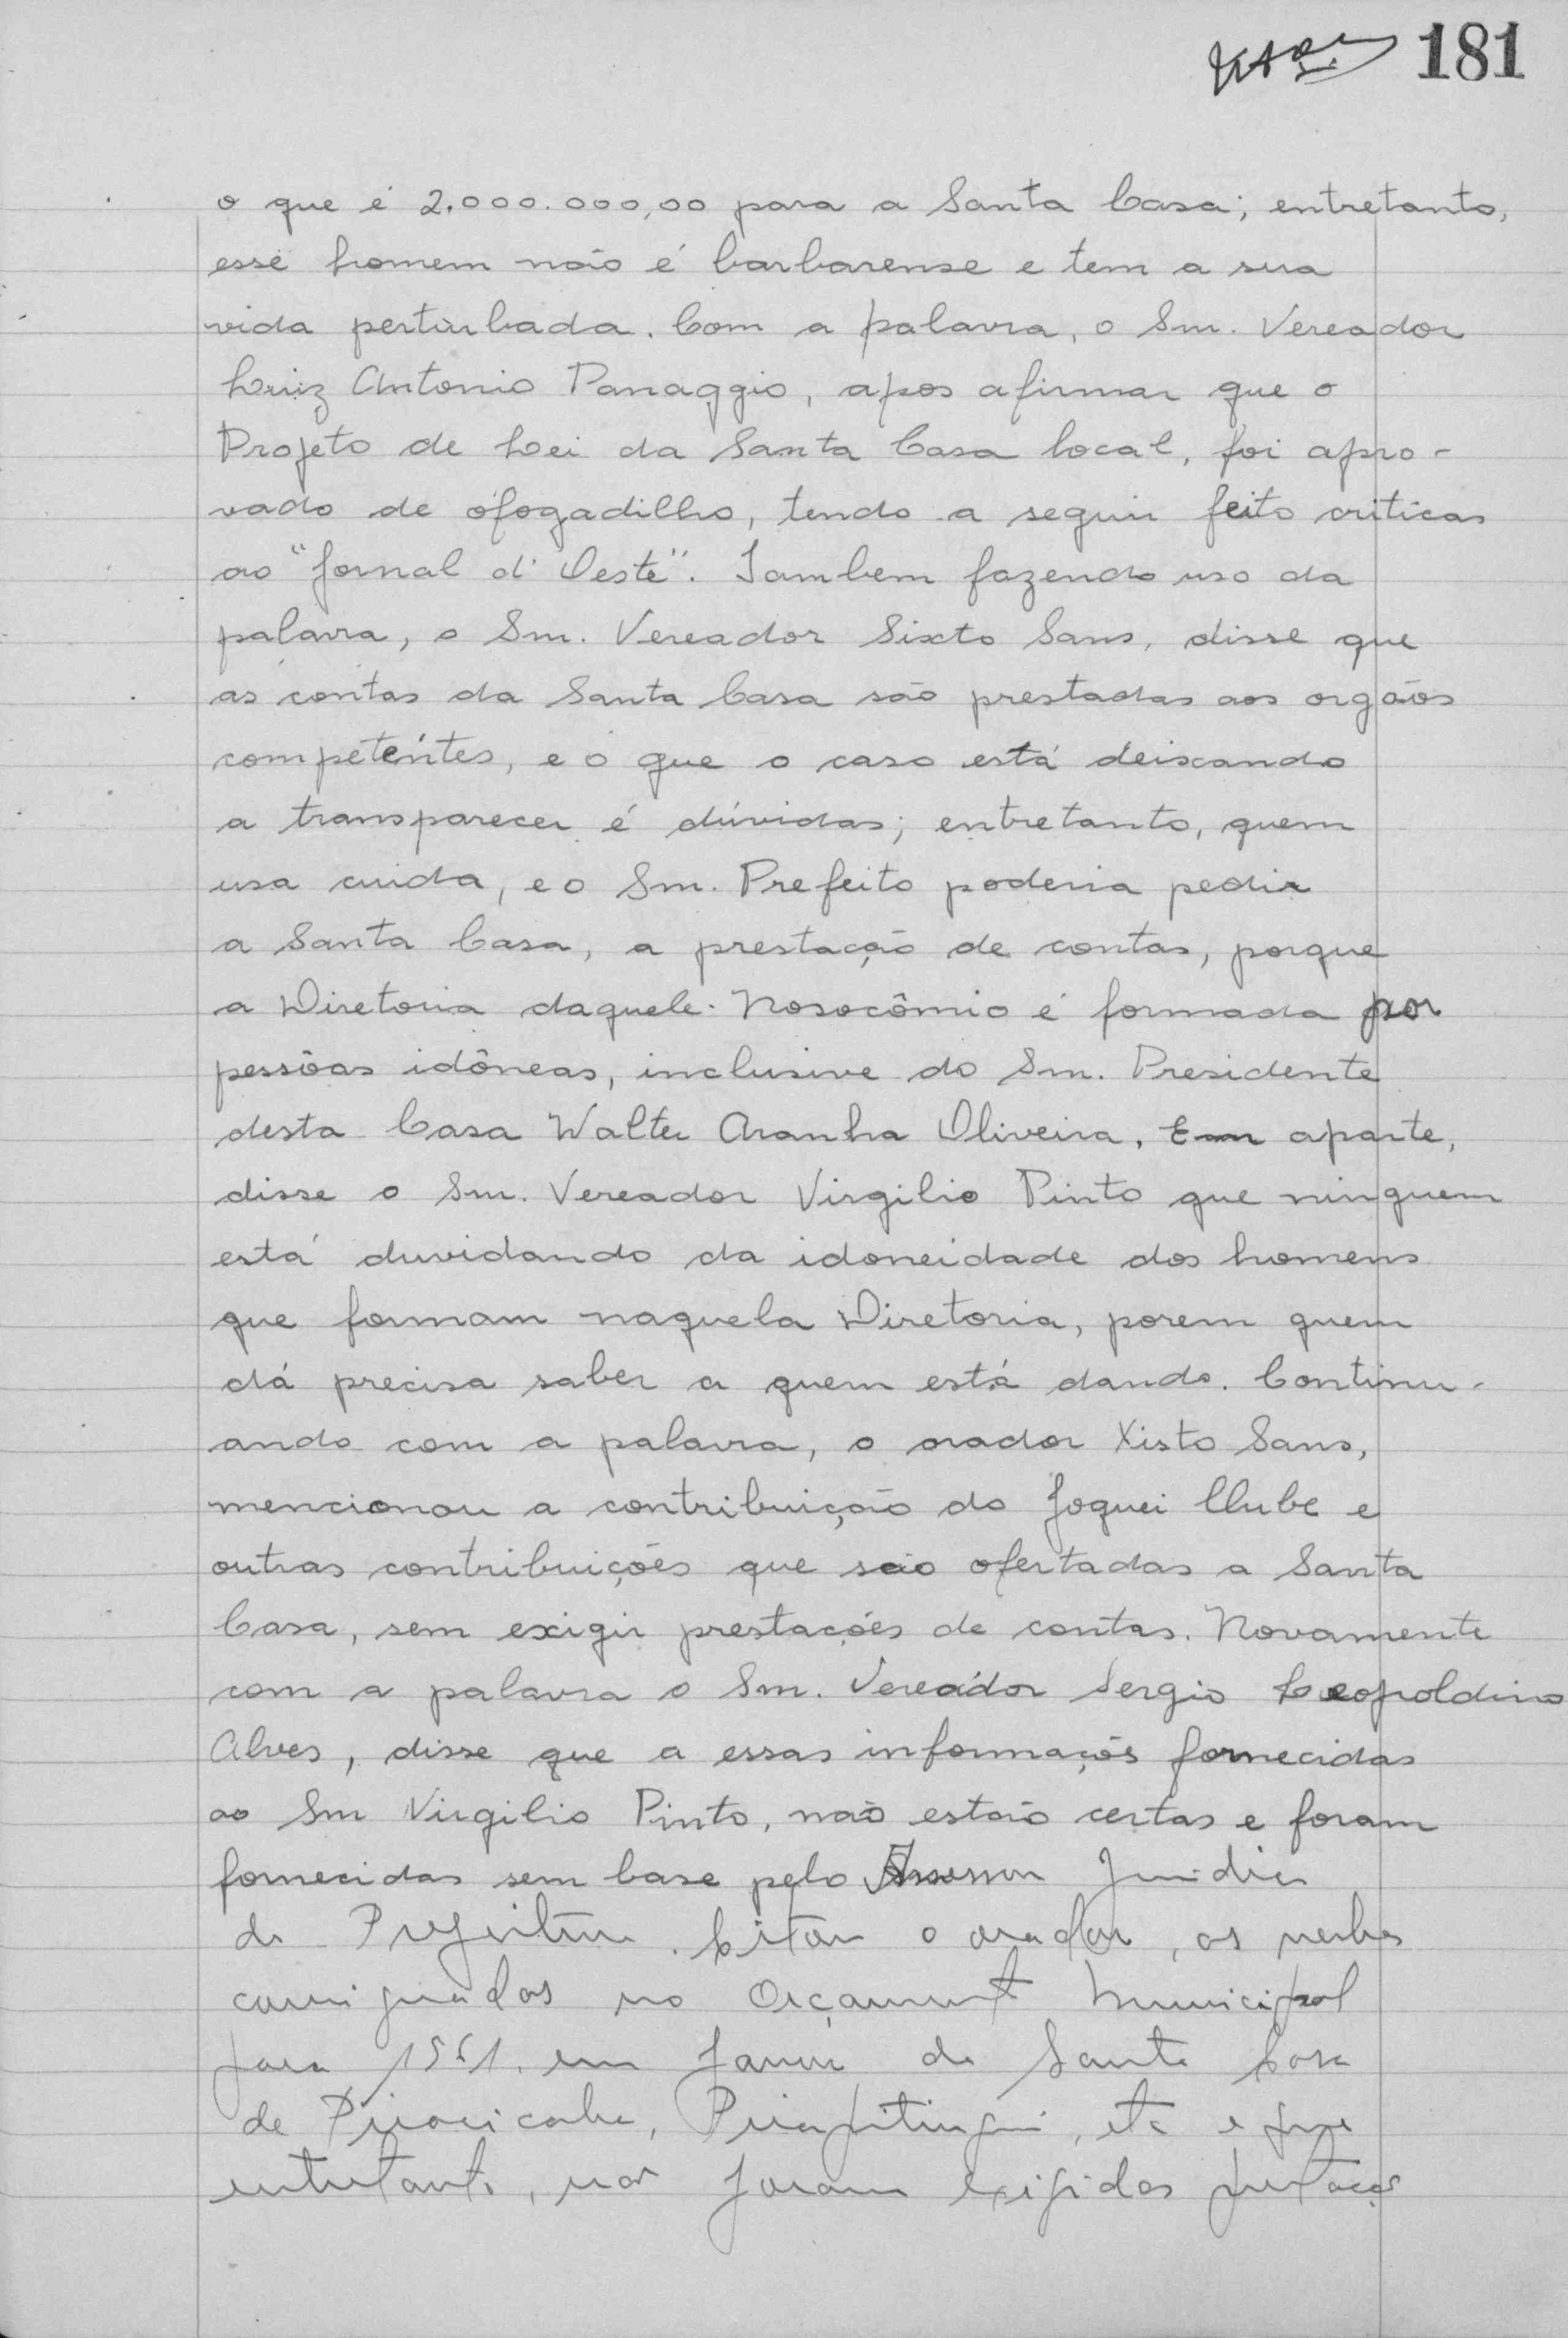 181
o que é 2.000.000,00 para a Santa Casa; entretanto,
esse homem não é barbarense e tem a sua
vida perturbada. Com a palavra, o Snr. Vereador
Luiz Antonio Panaggio, apos afirmar que o
Projeto de Lei da Santa Casa local, foi apro-
vado de ofogadilho, tendo a seguir feito criticas
ao "Jornal d'Oeste". Tambem fazendo uso da
palavra, o Snr. Vereador Sixto Sans, disse que
as contas da Santa Casa são prestadas aos orgãos
competentes, e o que o caso está deixando
a transparecer é dúvidas; entretanto, quem
usa cuida, e o Snr. Prefeito poderia pedir
a Santa Casa, a prestação de contas, porque
a Diretoria daquele Nosocômio é formada por
pessôas idôneas, inclusive do Snr. Presidente
desta Casa Walter Aranha Oliveira. Em aparte,
disse o Snr. Vereador Virgilio Pinto que ninguem
está duvidando da idoneidade dos homens
que formam naquela Diretoria, porem quem
dá precisa saber a quem está dando. Continu-
ando com a palavra, o orador Xisto Sans,
mencionou a contribuição do Joquei Clube e
outras contribuições que são ofertadas a Santa
Casa, sem exigir prestações de contas. Novamente
com a palavra o Snr. Vereador Sergio Leopoldino
Alves, disse que a essas informaçõs fornecidas
ao Snr Virgilio Pinto, não estão certas e foram
fornecidas sem base pelo Assessor Juridico
da Prefeitura. Citou o orador, as verbas
consignadas no Orçamento Municipal
para 1961. em favor da Santa Casa
de Piracicaba, Pirapitingui, etc e que
entretanto, não foram exigidas prestações